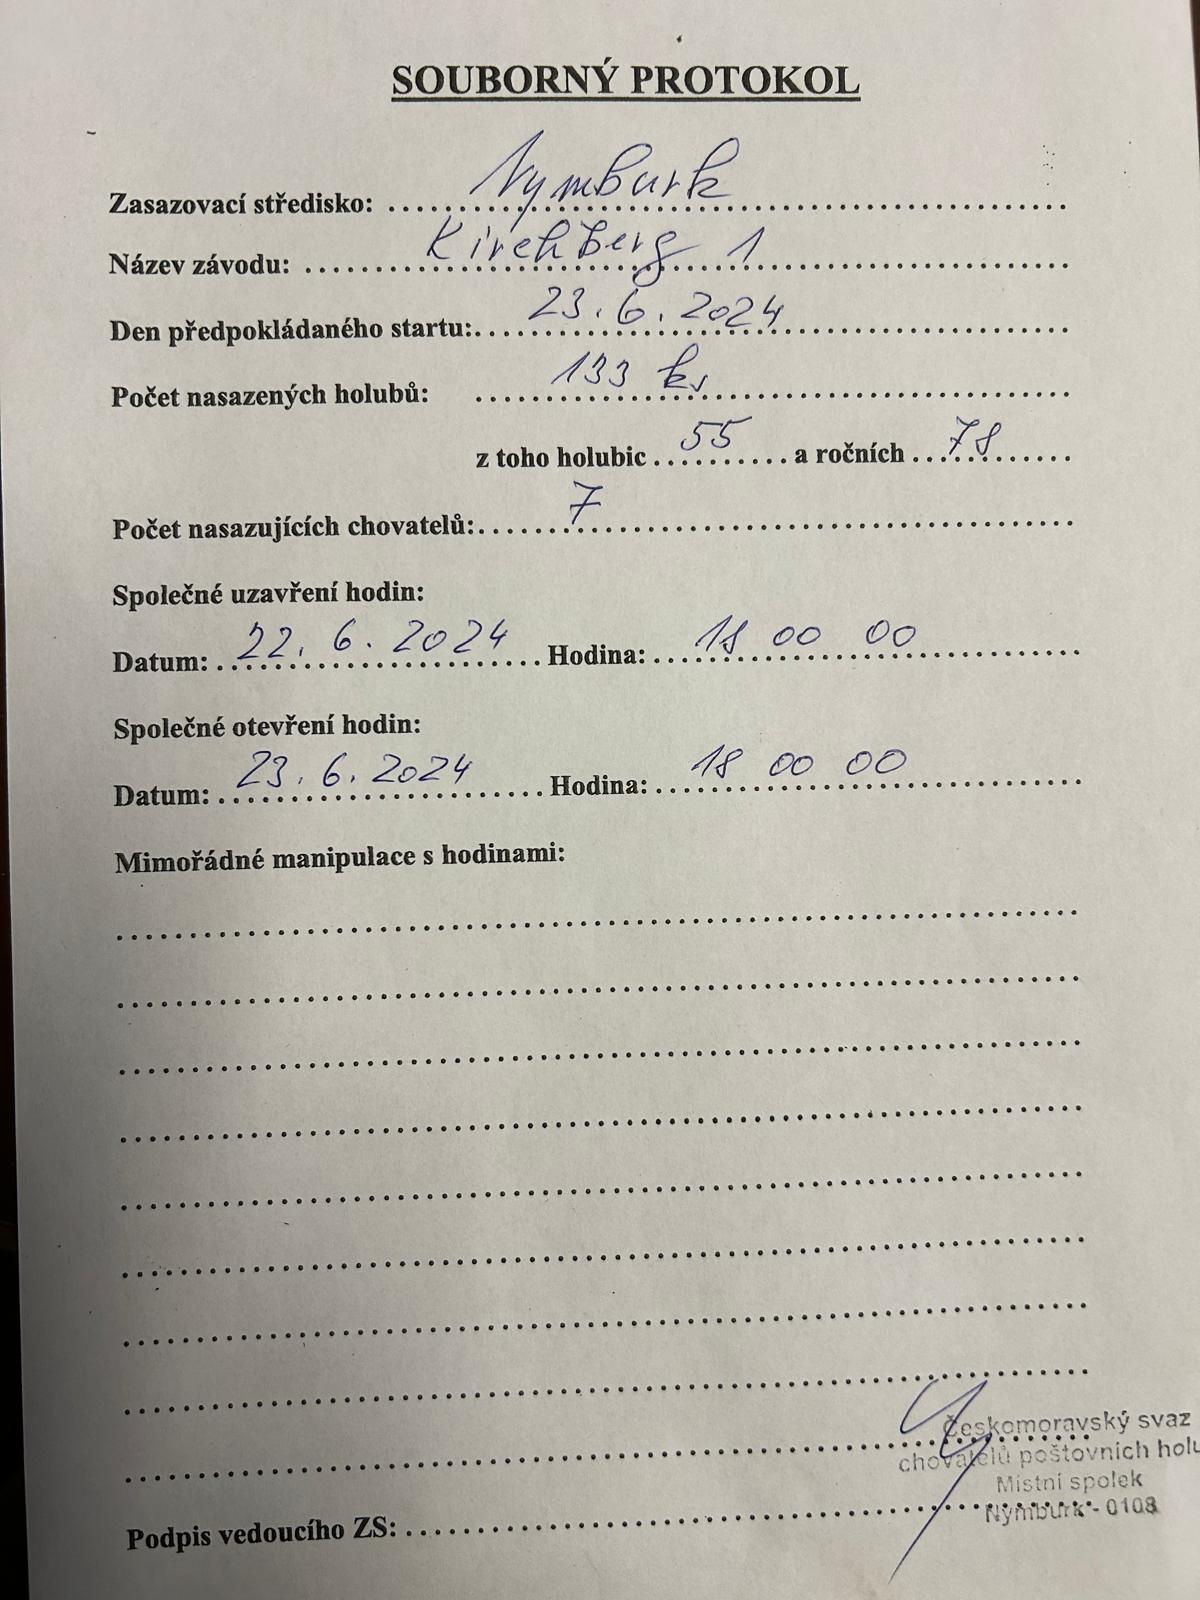 SOUBORNÝ PROTOKOL
Zasazovací středisko: Nymburk
Název závodu: Kirchberg 1
Den předpokládaného startu: 23.6.2024
Počet nasazených holubů: 133 ks
z toho holubic 55 a ročních 78
Počet nasazujících chovatelů: 7
Společné uzavření hodin:
Datum: 22.6.2024 Hodina: 18 00 00
Společné otevření hodin:
Datum: 23.6.2024 Hodina: 18 00 00
Mimořádné manipulace s hodinami:
Českomoravský svaz
chovatelů poštovních holu
Místní spolek
Nymburk - 0108
Podpis vedoucího ZS: